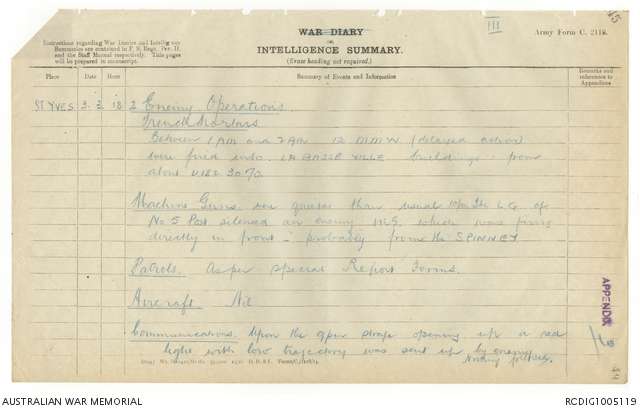 WAR DIARY
or
INTELLIGENCE SUMMARY.
(Erase heading not required.)
Army Form C. 2118.
III
Instructions regarding War Diaries and Intelligence
Summaries are contained in F. S. Regs., Part II.
and the Staff Manual respectively. Title pages
will be prepared in manuscript.
Place Date Hour Summary of Events and Information Remarks and references to Appendices
ST YVES 3. 3. 18 2 Enemy Operations
Trench Mortars
Between 1 AM and 2 AM 12 M.M.W (delayed action)
were fired into LA BASSE VILLE buildings from
about U18b 30.70.
Machine Guns were quieter than usual the L.G. of
No 5 Post silenced an enemy M.G. which was firing
directly in front - probably from the SPINNEY
Patrols. As per special Report Forms.
Aircraft Nil
Communications. Upon the opening up a red
light with low trajectory was sent up by enemy
Nothing followed.
APPENDIX
AUSTRALIAN WAR MEMORIAL
RCDIG1005119